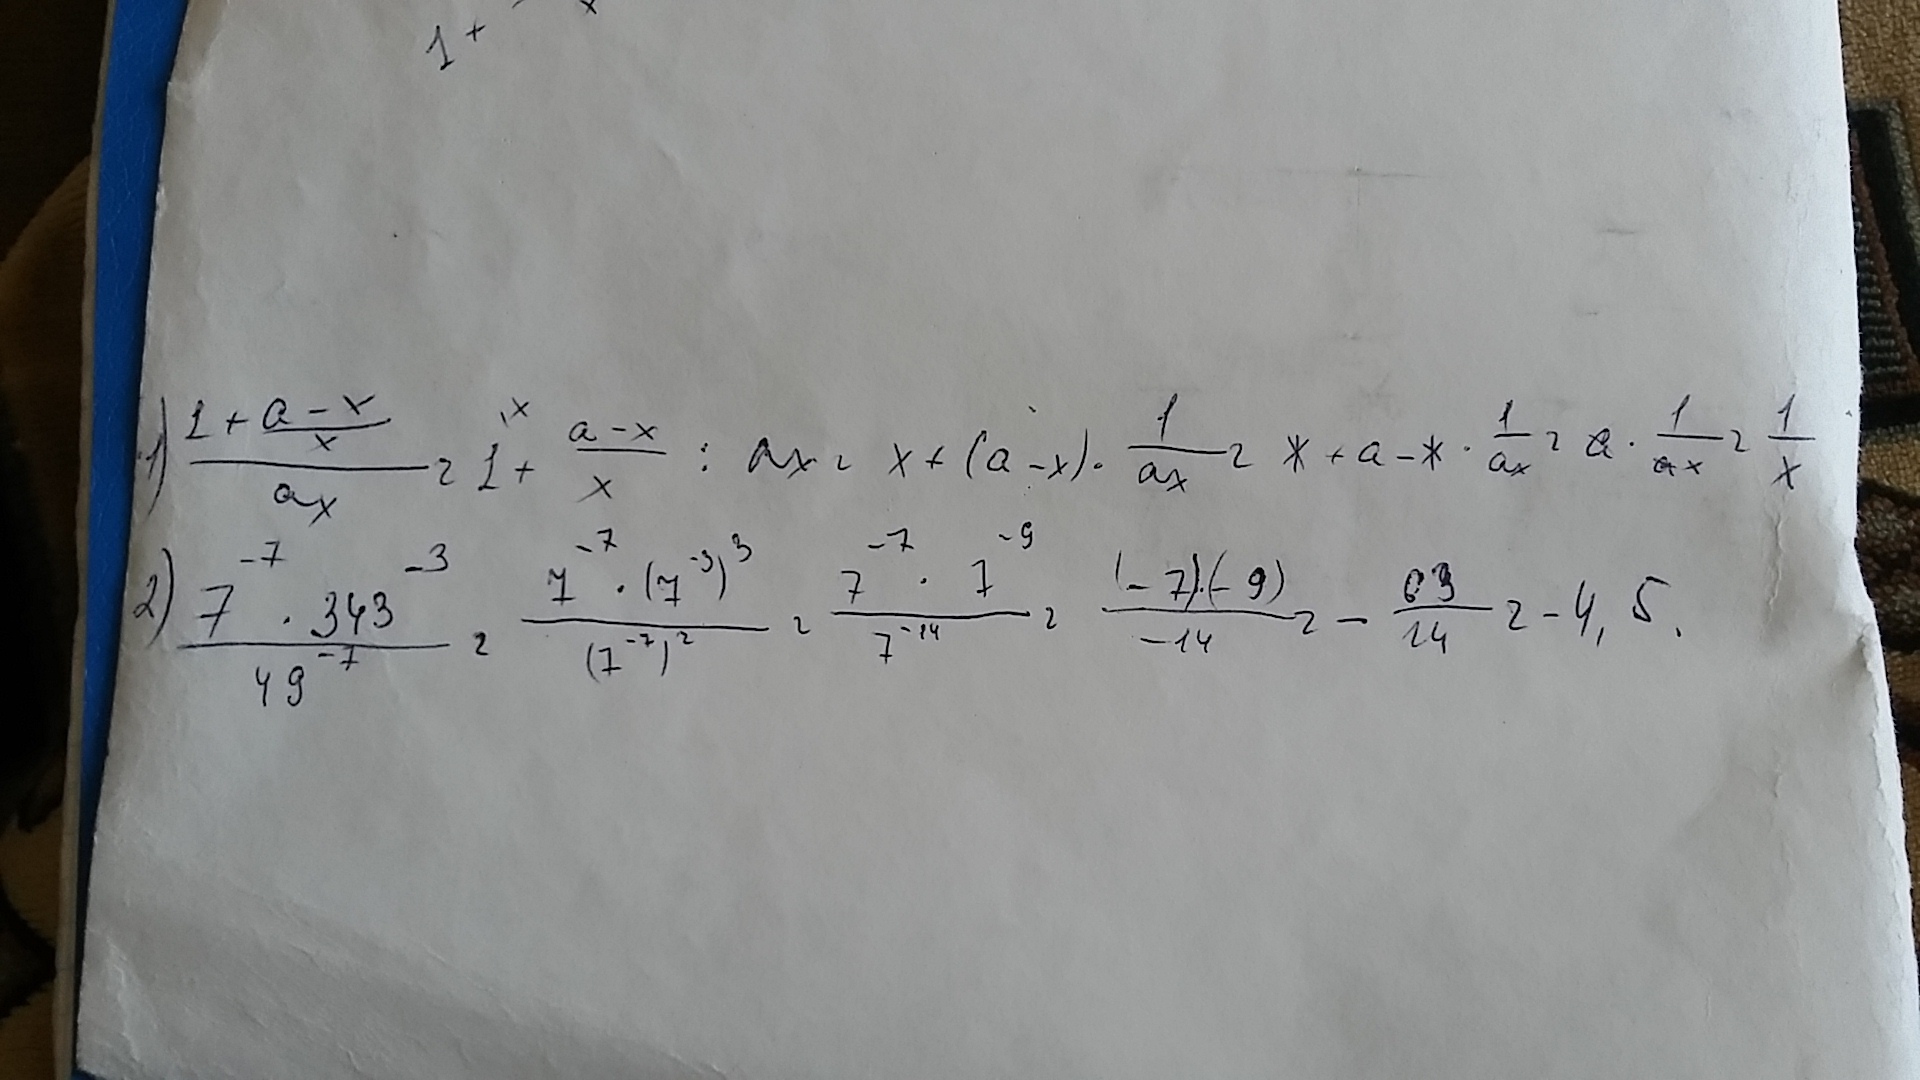 1 +
1) (1 + (a-x)/x)/(ax) = 1 ,x + (a-x)/x : ax = x + (a-x) · 1/(ax) = x + a - x · 1/(ax) = a · 1/(ax) = 1/x
2) (7^-7 · 343^-3)/(49^-7) = (7^-7 · (7^-3)^3)/((7^-7)^2) = (7^-7 · 7^-9)/(7^-14) = ((-7)·(-9))/(-14) = - 63/14 = -4,5.